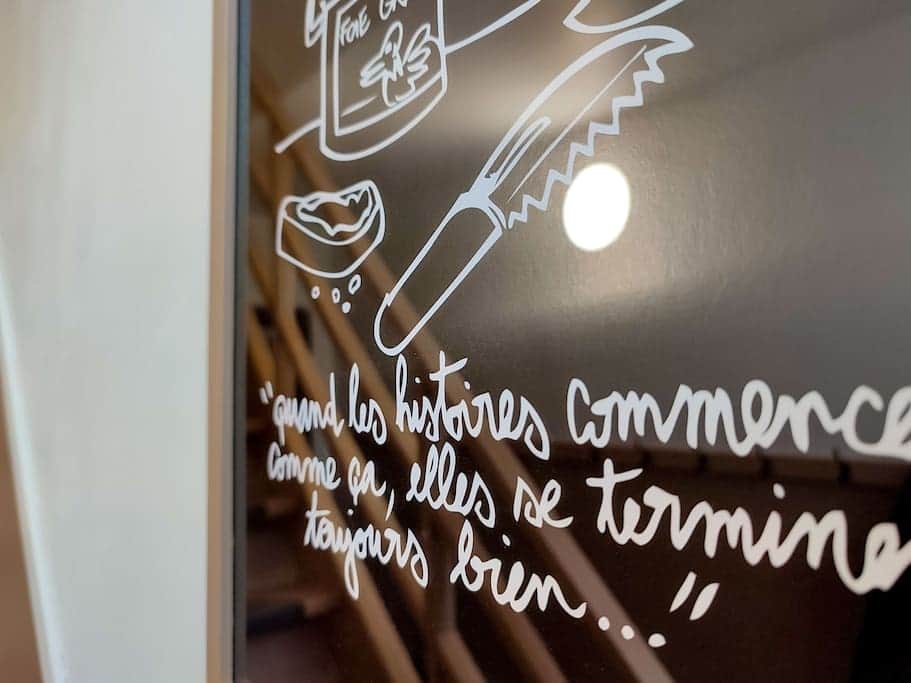 FOIE G
"quand les histoires commence
comme ça, elles se termine
toujours bien..."